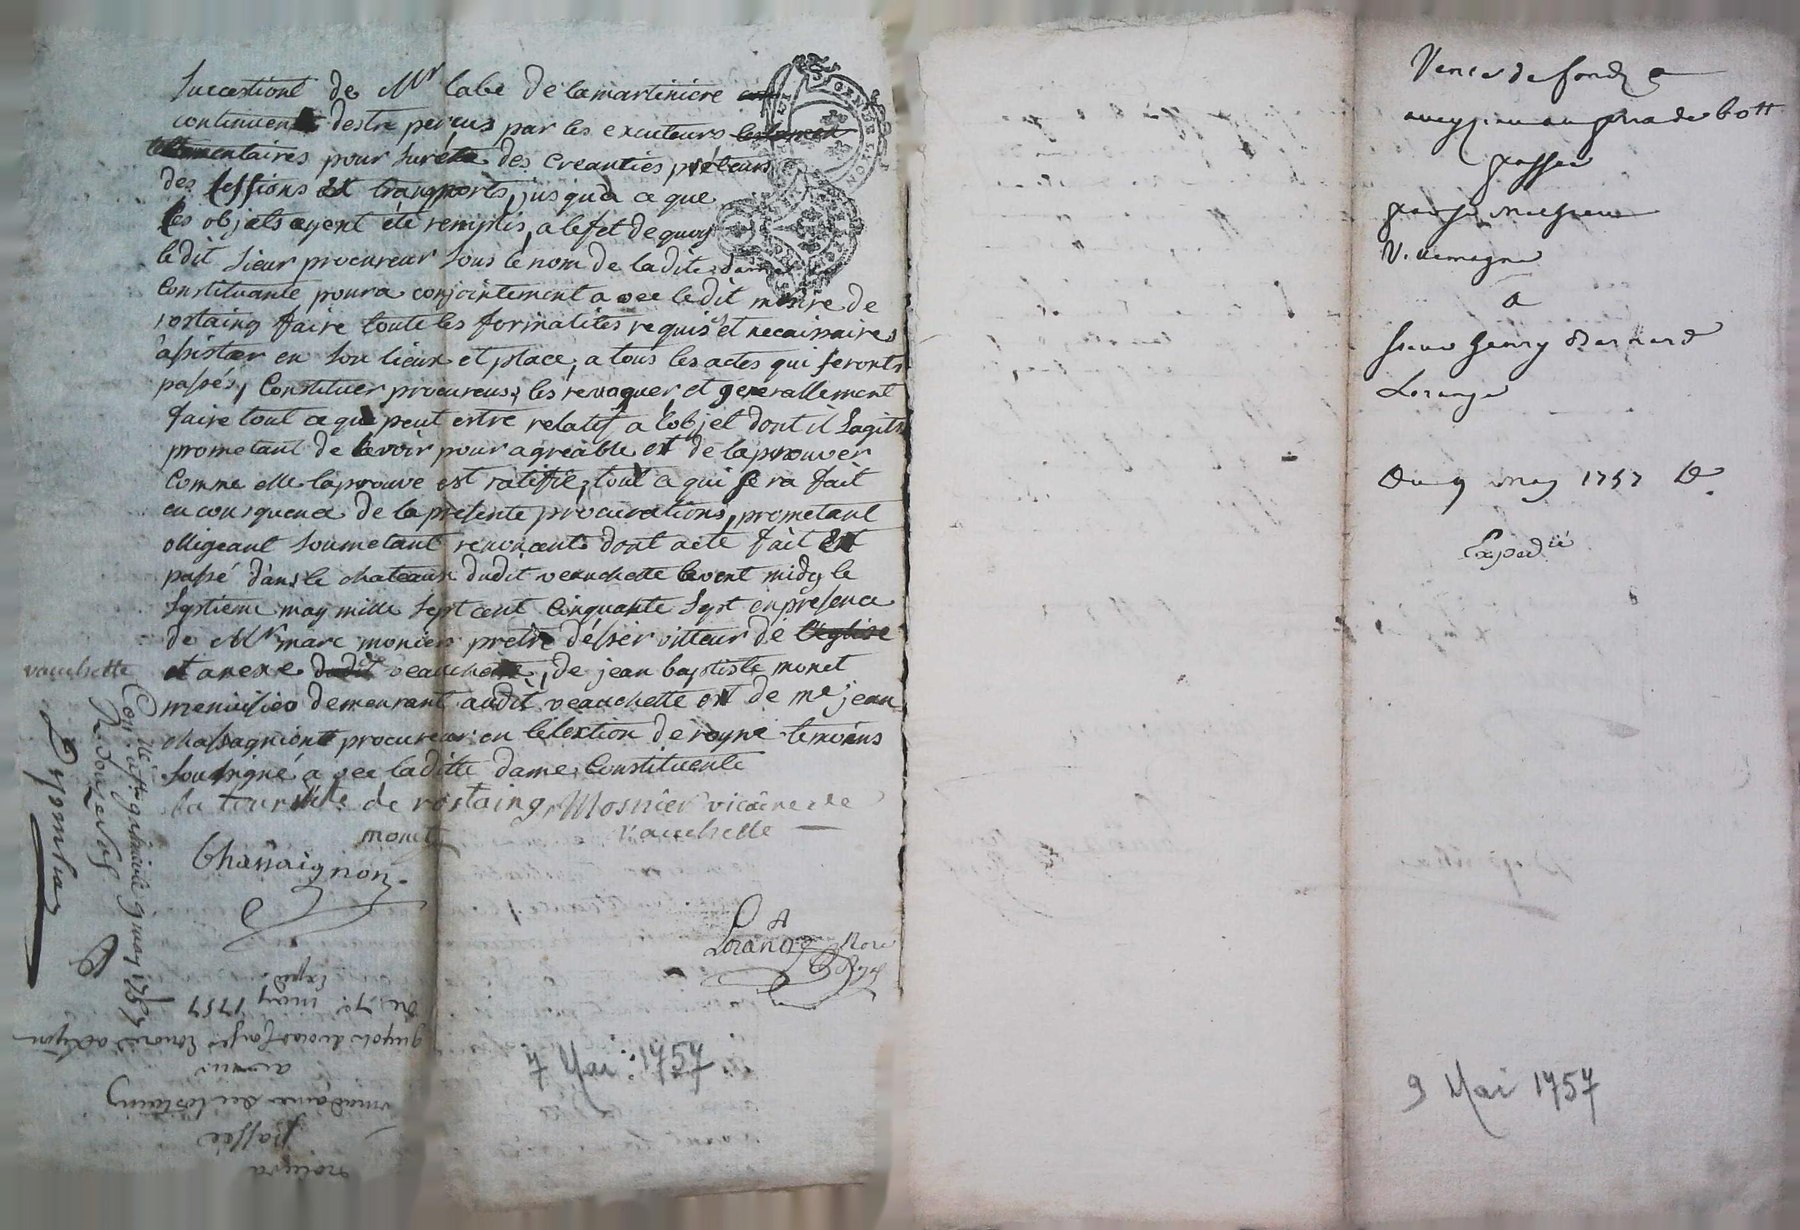 Successions de Mr labé de lamartinière
continuent destre perçus par les executeurs testamen
tementaires pour sureté des creantiés préteurs
des sessions et transports, jusqua ce que
les objets ayent été remplis, a lefet de quoy
ledit sieur procureur sous le nom de ladite dame
Constituante poura conjointement avec ledit messire de
rostaing faire toute les formalités requis et necaissaires
assister en son lieux et place, a tous les actes qui seronts
passés, Constituer procureurs, les revoquer et generallement
faire tout ce qui peut estre relatif a lobjet dont il sagits
prometant de lavoir pour agréable et de laprouver
Comme elle laprouve est ratifie, tout ce qui se ra fait
en consequence de la présente procurations, prometant
obligeant soumetant renonceant dont acte fait et
passé dans le chateaux dudit veauchette avent midy le
septième may mille sept cent cinquante sept en presence
de Mr marc monier pretre désservitteur de l'eglise
vauchette
et anexe dudit veauchette, de jean baptiste monet
menuisier demeurant audit veauchette et de me jean
chassagnion procureur en lelextion de royne temoins
soussigné avec laditte dame Constituente
la tourette de rostaing Mosnier vicaire de
monet vauchette
Chassaignon
Lorange Nore
Ryal
7 Mai 1757
du 7e may 1757
Exped.
a
madame de Rostaing
passée
par
Vente de fonds
passee
par sr Mathieu
Villemagne
a
sieur henry Bernard
Lorange
Du 9 may 1757
Expedié
9 Mai 1757